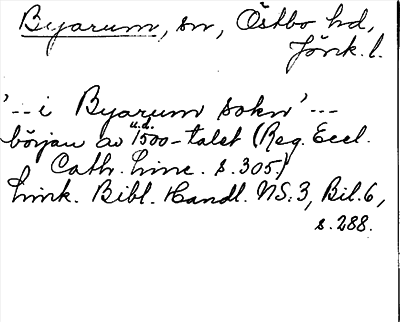 Byarum, sn, Östbo hd,
Jönk. l.
'--i Byarum sokn'---
u.d.
början av 1500-talet (Reg. Eccl.
Cath. Linc. s. 305.)
Link. Bibl. Handl. NS. 3, Bil. 6,
s. 288.